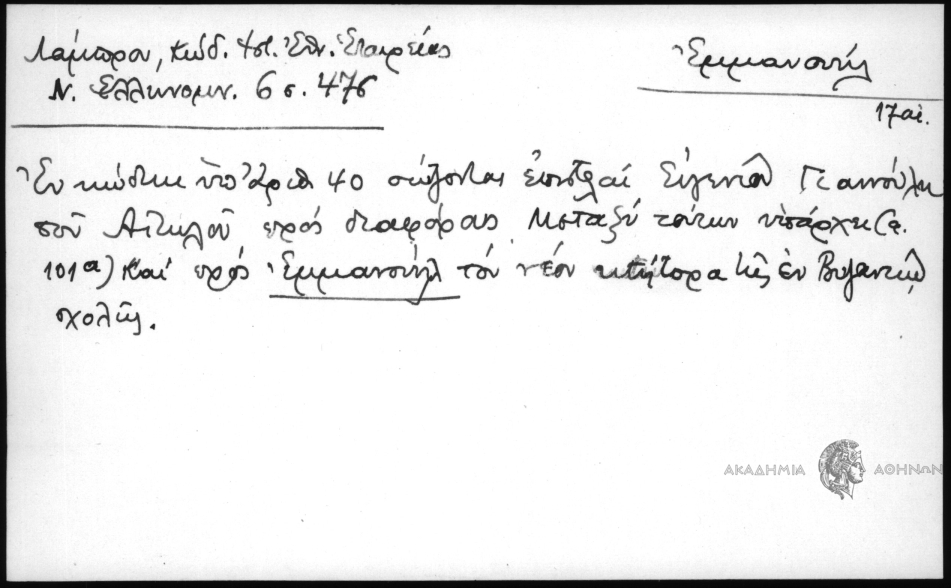 Λάμπρου, Κώδ. Ἱστ. Ἐθν. Ἑταιρείας
Ν. Ἑλληνομν. 6 σ. 476
Ἐμμανουήλ
17 αἰ.
Ἐν κώδικι ὑπ' ἀριθ 40 σώζονται ἐπιστολαί Εὐγενίου Γιαννούλη
τοῦ Αἰτωλοῦ πρός διαφόρους. Μεταξύ τούτων ὑπάρχει (φ.
101α) καί πρός Ἐμμανουήλ τόν νέον κτήτορα τῆς ἐν Βυζαντίῳ
σχολῆς.
ΑΚΑΔΗΜΙΑ ΑΘΗΝΩΝ